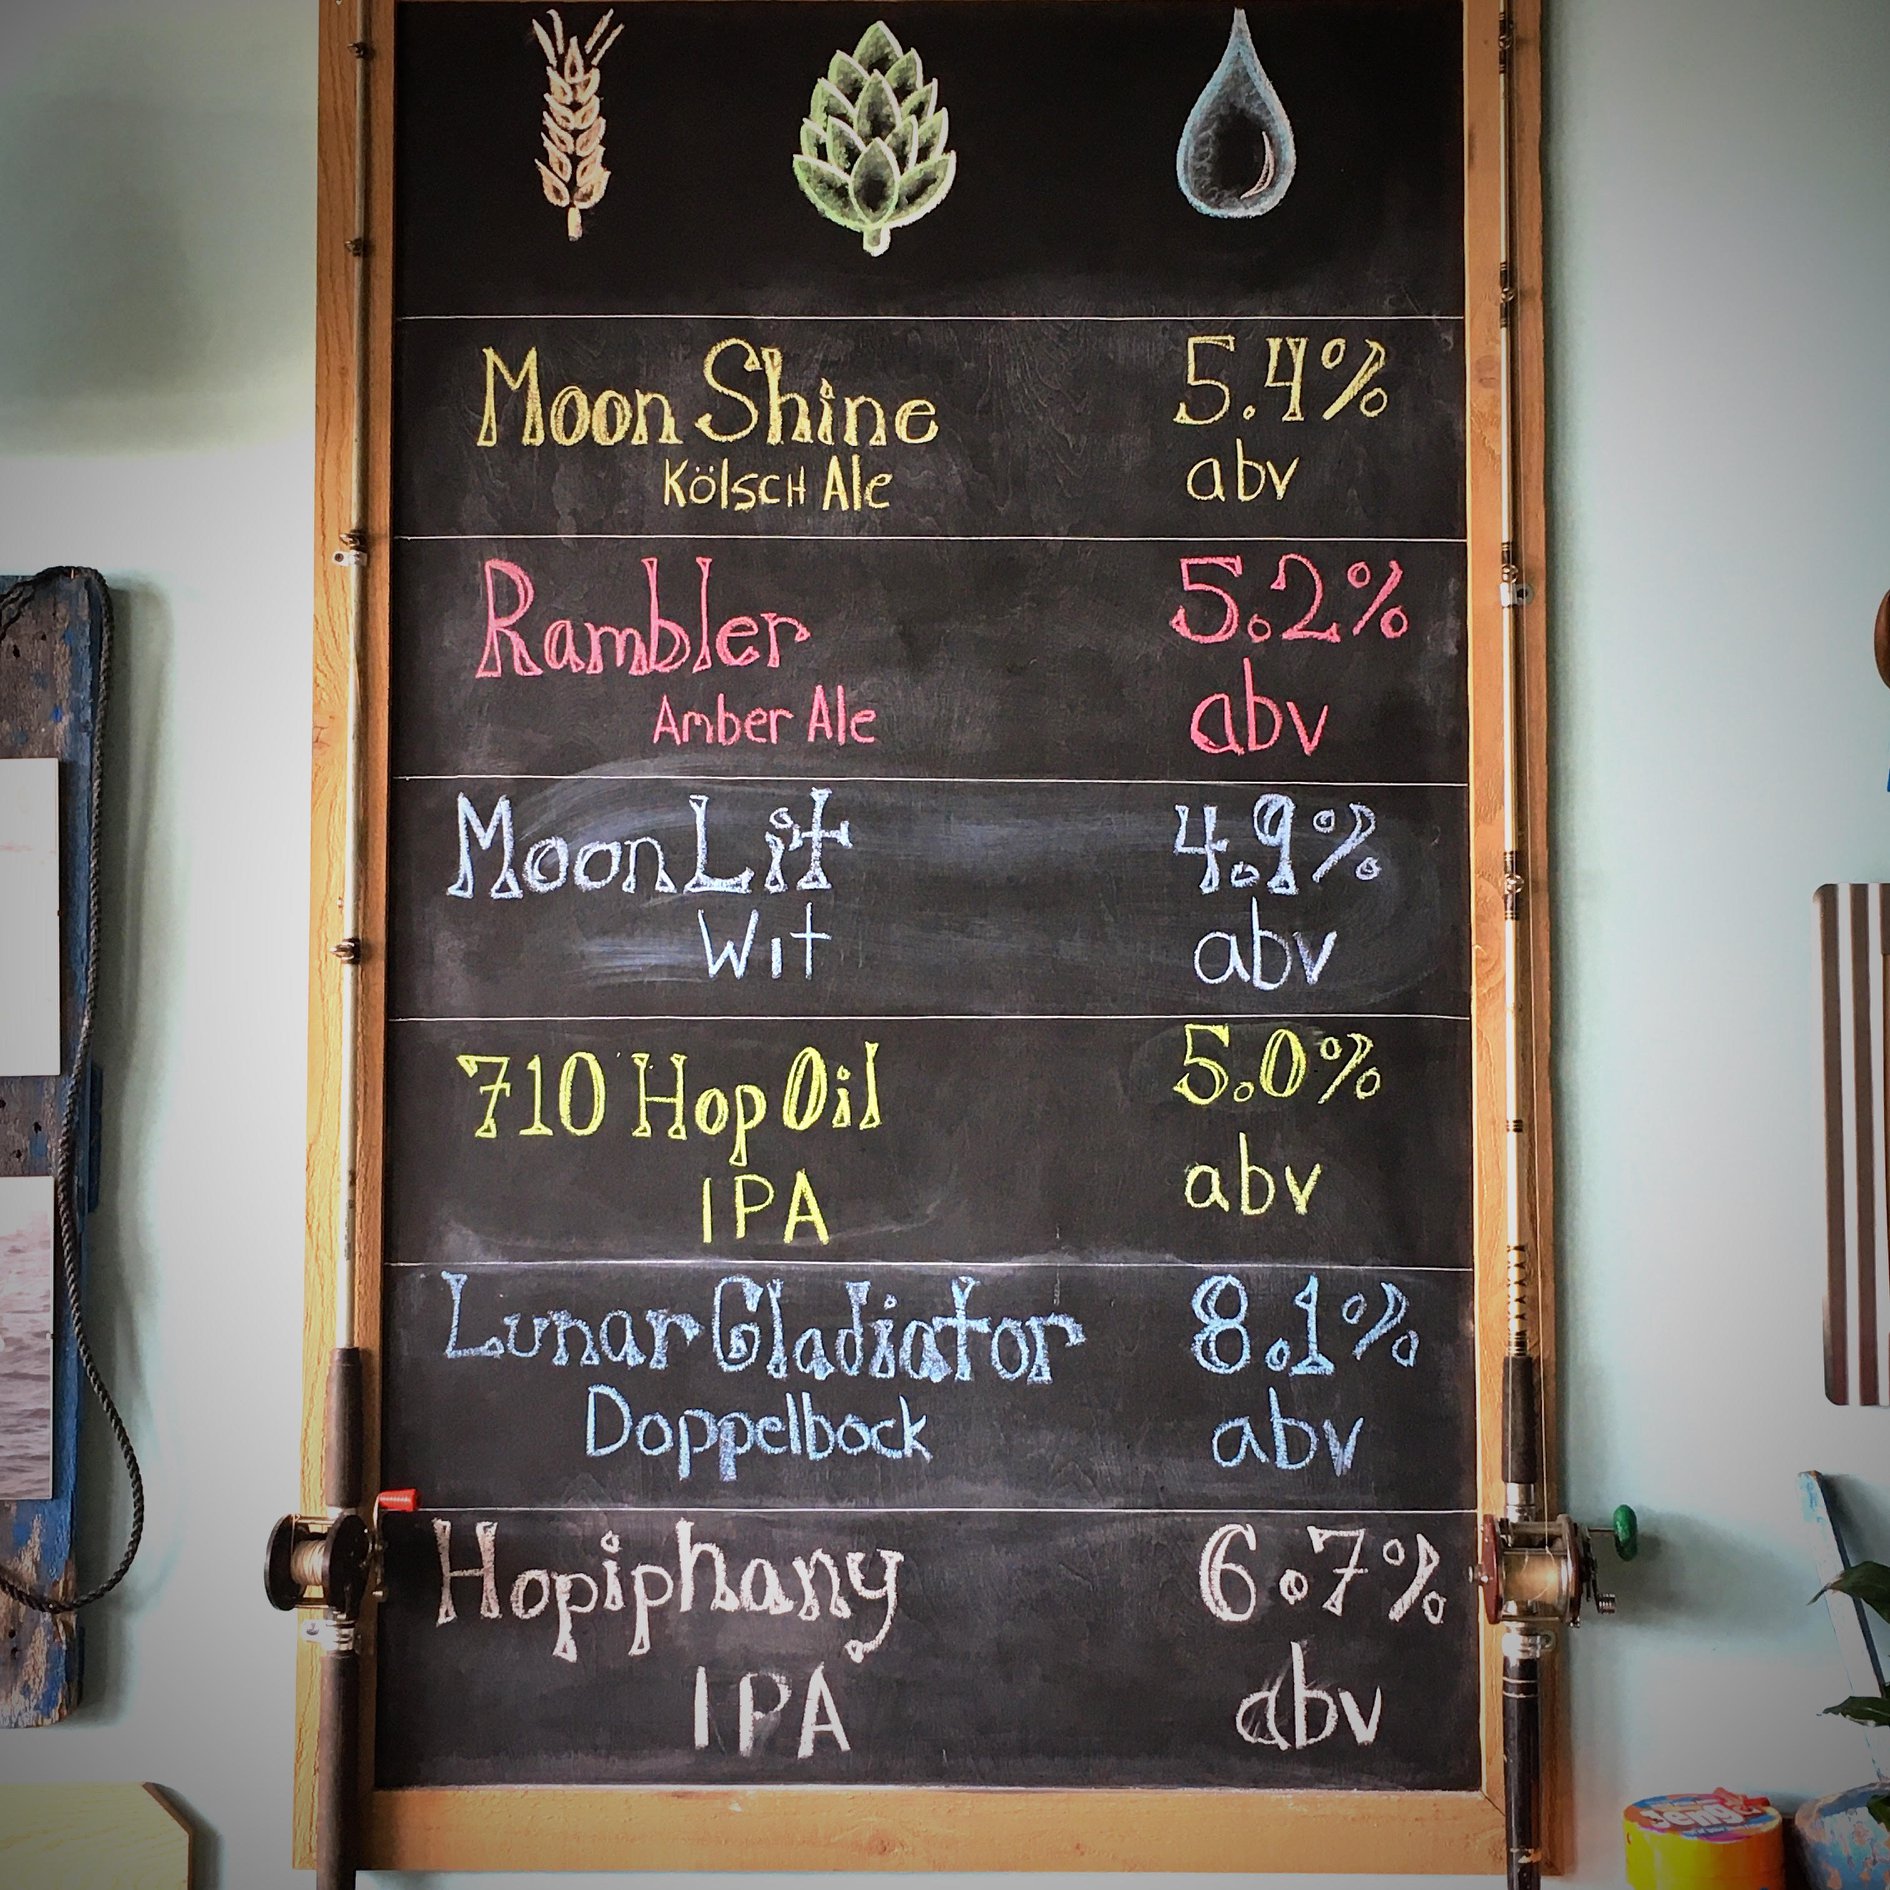 Moon Shine 5.4%
Kölsch Ale abv
Rambler 5.2%
Amber Ale abv
Moon Lit 4.9%
Wit abv
710 Hop Oil 5.0%
IPA abv
Lunar Gladiator 8.1%
Doppelbock abv
Hopiphany 6.7%
IPA abv
Jenga